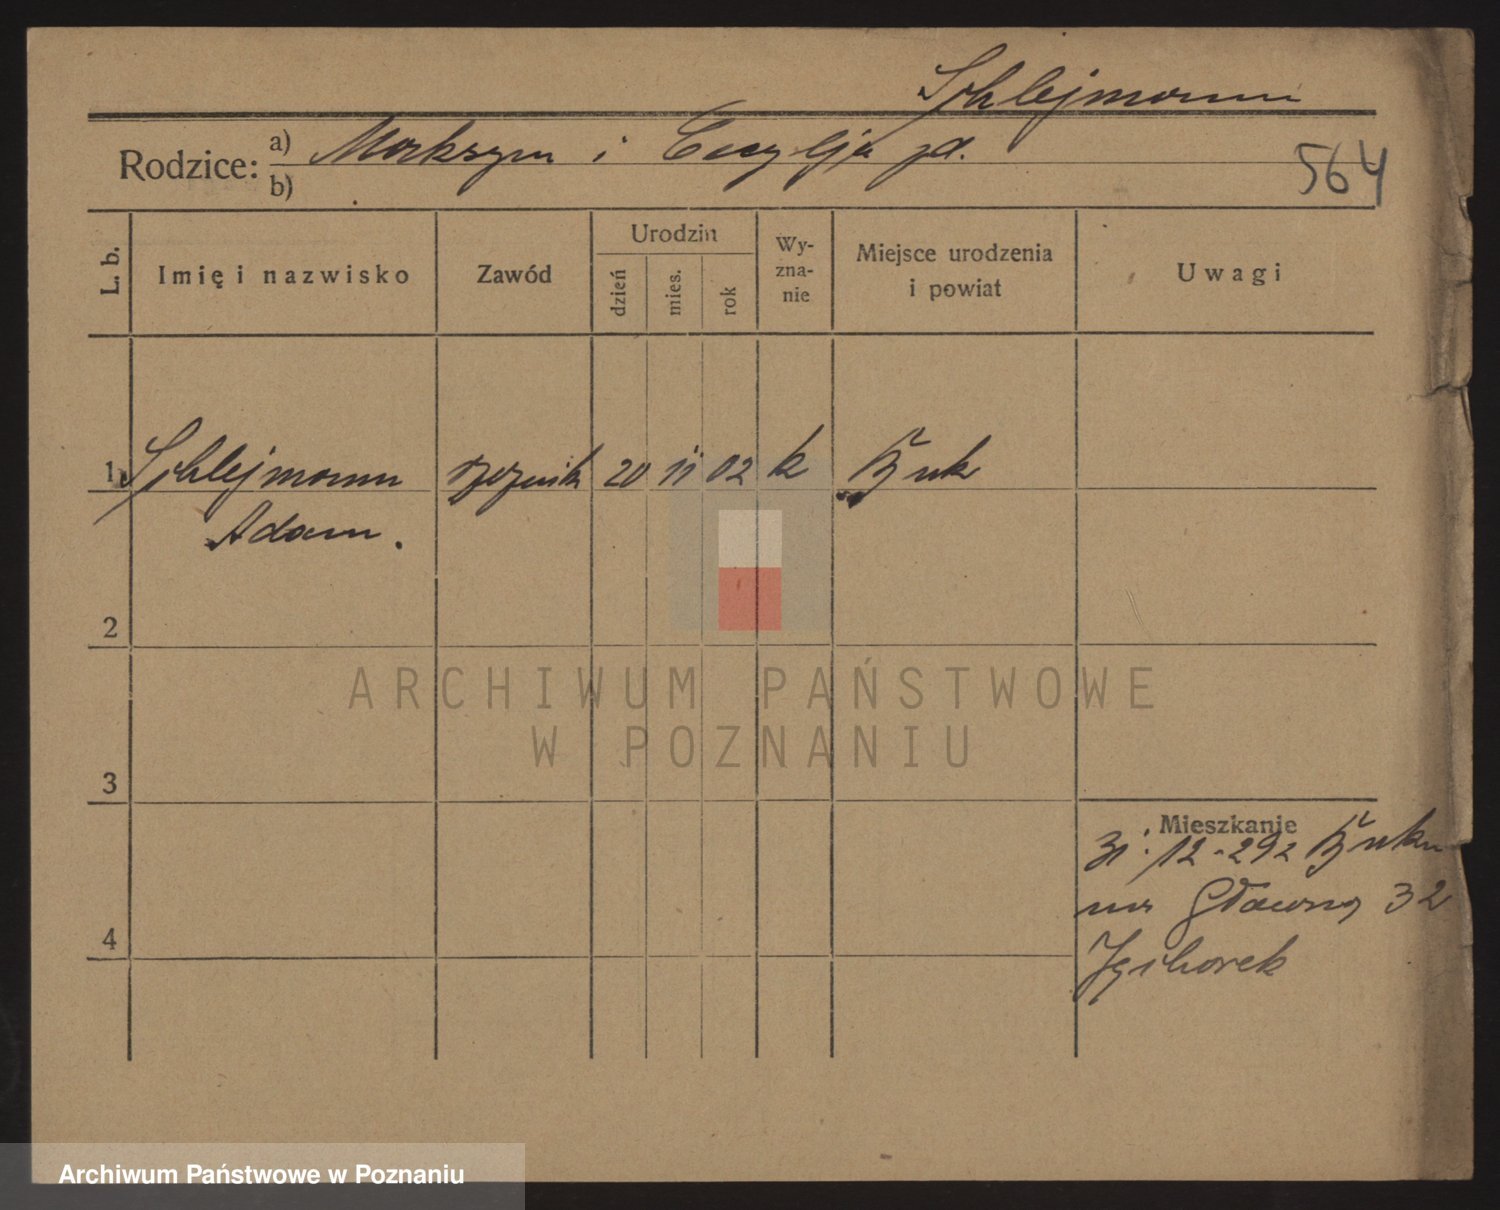 Schlejmann
Rodzice: a) Maksym i Cecylja zd.
b)
564
L. b.
Imię i nazwisko
Zawód
Urodzin
dzień
mies.
rok
Wy-
zna-
nie
Miejsce urodzenia
i powiat
Uwagi
1 Schlejmann rzeźnik 20 11 02 k Buk
Adam.
2
3
4
Mieszkanie
31.12.29 z Buku
Główna 32
ARCHIWUM PAŃSTWOWE
W POZNANIU
Archiwum Państwowe w Poznaniu